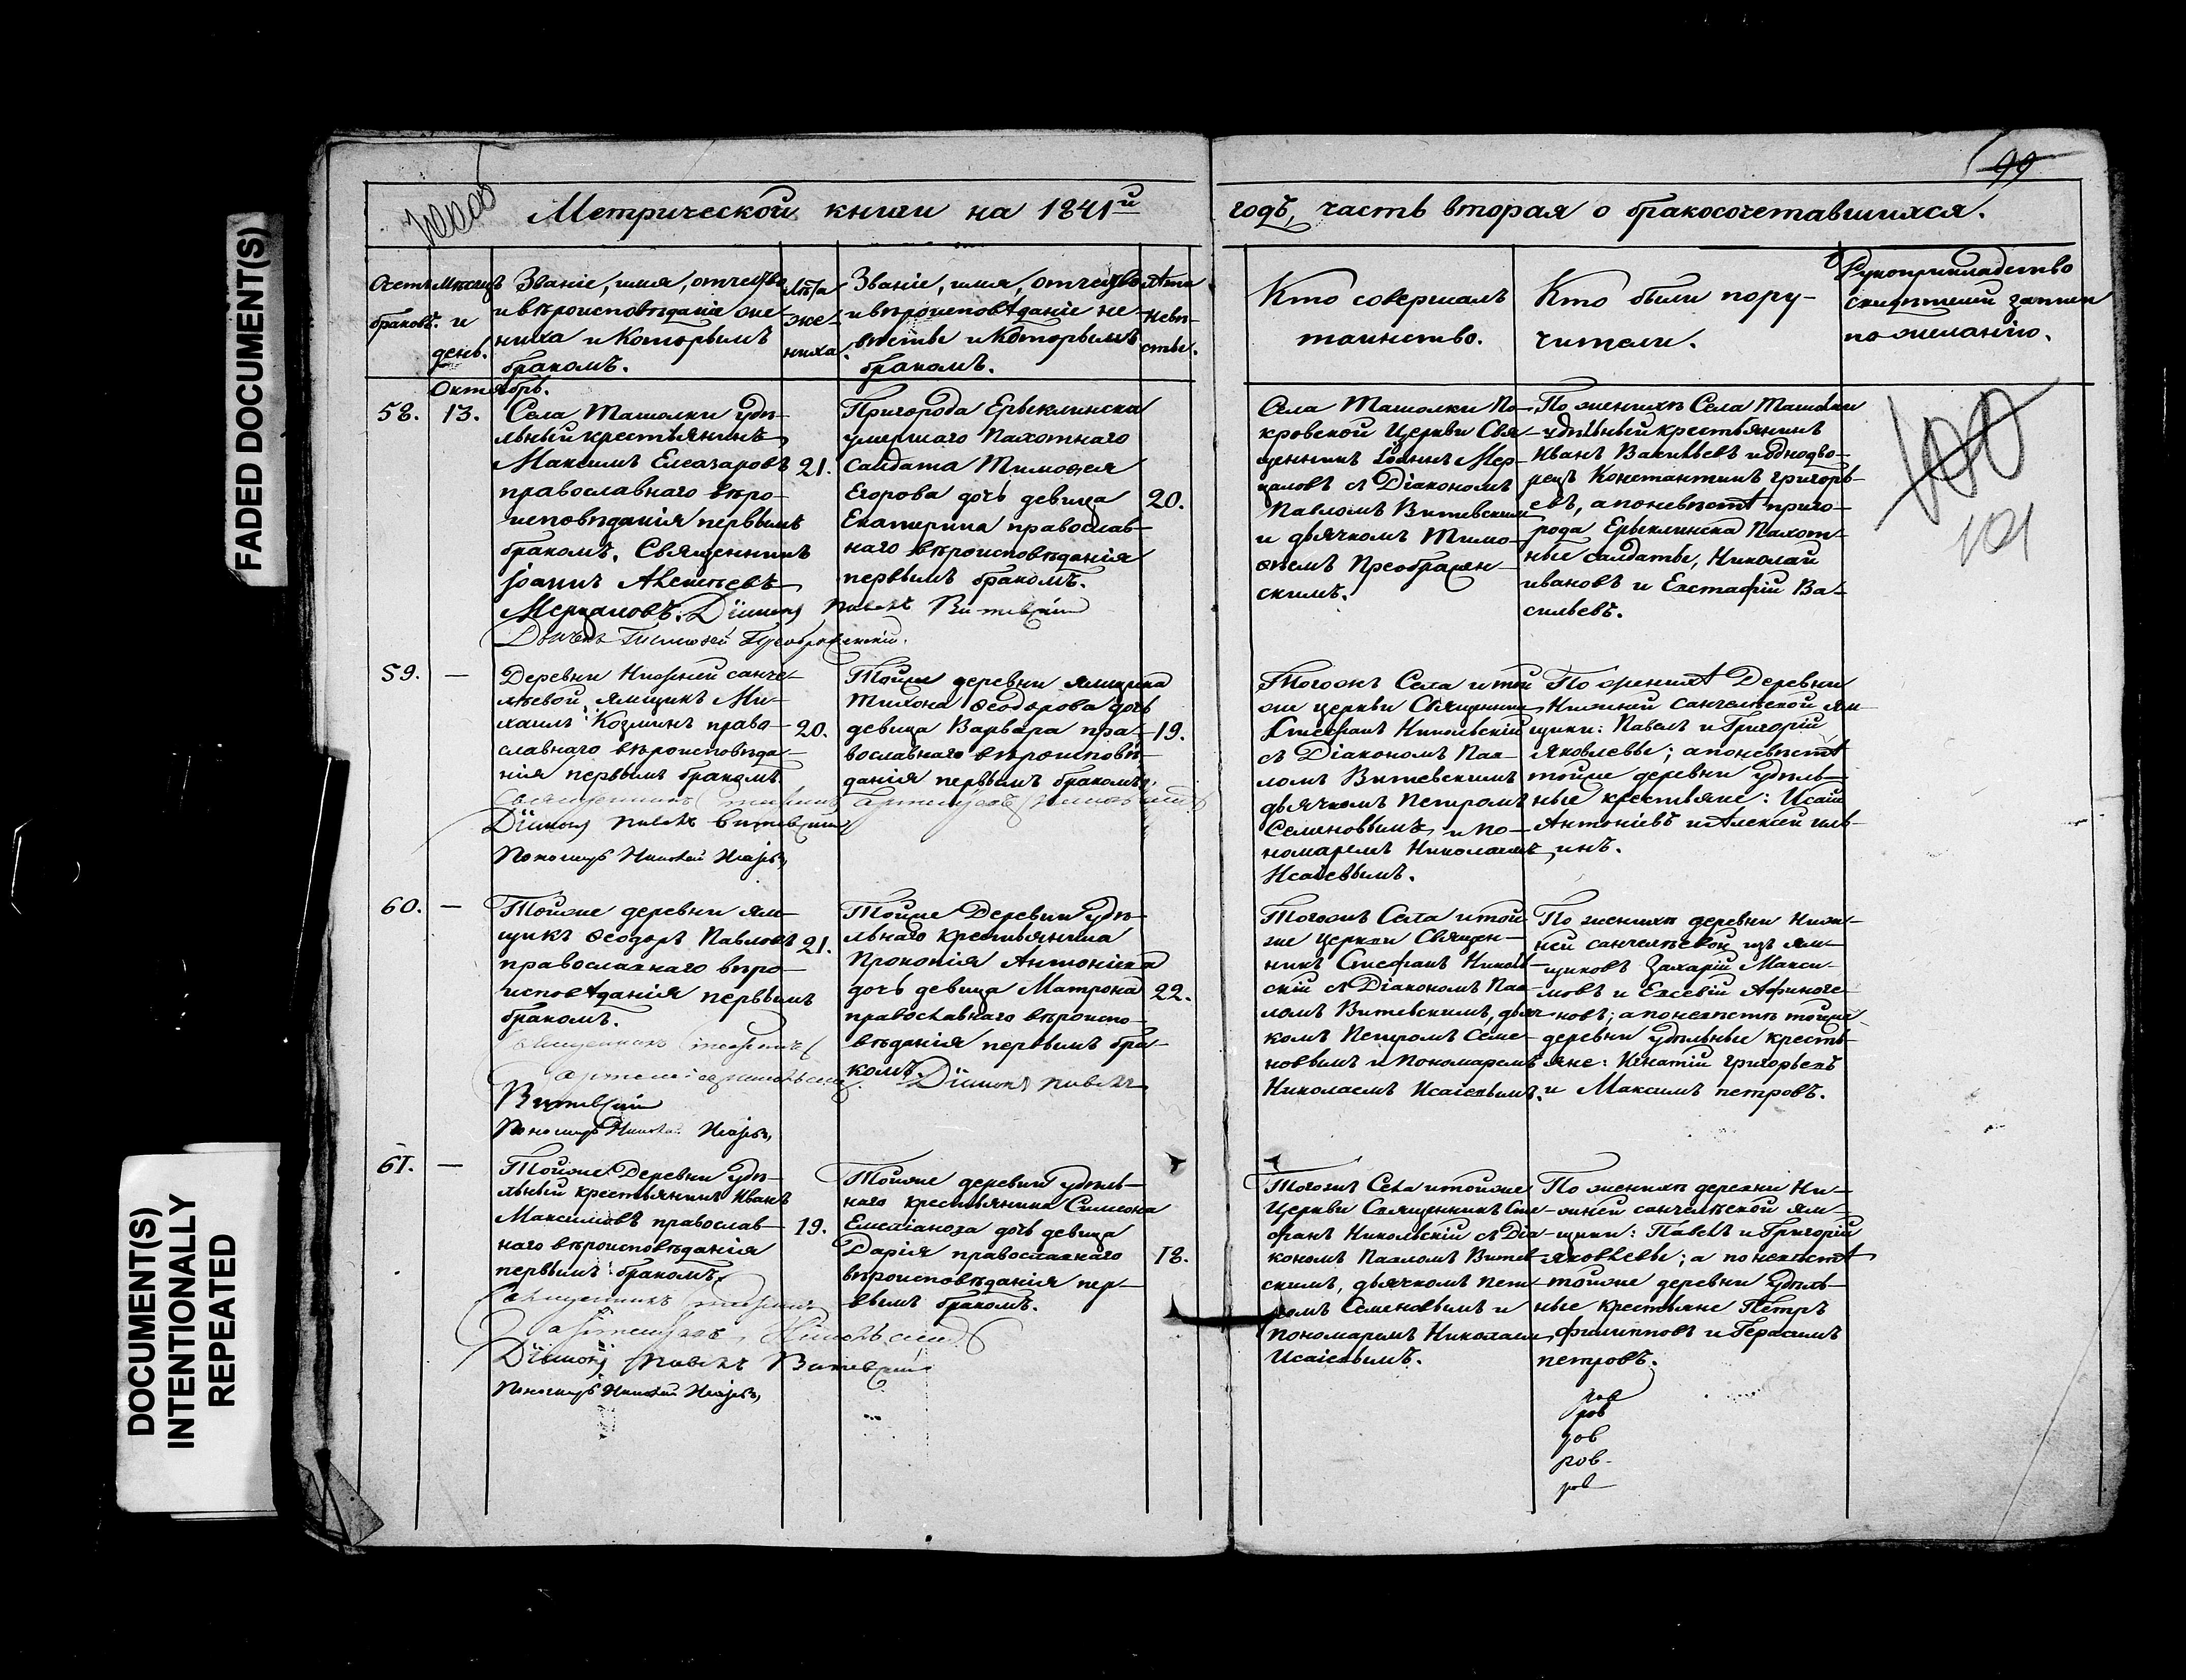 FADED DOCUMENT(S)
DOCUMENT(S)
INTENTIONALLY
REPEATED
99
Метрической книги на 1841й
годъ, часть вторая о бракосочетавшихся.
Счетъ
браковъ.
Мѣсяцъ
и
день.
Званіе, имя, отчество
и вѣроисповѣданіе же-
ниха и которымъ
бракомъ.
Лѣта
же-
ниха.
Званіе, имя, отчество
и вѣроисповѣданіе не-
вѣсты и которымъ
бракомъ.
Лѣта
невѣ-
сты.
Кто совершалъ
таинство.
Кто были пору-
чители.
Рукоприкладство
записи
по желанію.
Октябрь.
58.
13.
Села Ташолки удѣ-
льный крестьянинъ
Максимъ Елеазаровъ
православнаго вѣро-
исповѣданія первымъ
бракомъ. Священникъ
Іоаннъ Алексѣевъ
Мерцаловъ. Діаконъ Павелъ Витевскій
Дьячекъ Тимофей Преображенскій.
21.
Пригорода Ерыклинска
умершаго Пахотнаго
салдата Тимофея
Егорова дочь девица
Екатерина православ-
наго вѣроисповѣданія
первымъ бракомъ.
20.
Села Ташолки По-
кровской Церкви Свя-
щенникъ Іоаннъ Мер-
цаловъ съ Діакономъ
Павломъ Витевскимъ
и дьячкомъ Тимо-
фѣемъ Преображен-
скимъ.
По женихѣ Села Ташолки
удѣльный крестьянинъ
Иванъ Васильевъ и однодво-
рецъ Константинъ Григорь-
евъ, а по невѣстѣ приго-
рода Ерыклинска Пахот-
ные салдаты, Николай
Ивановъ и Евстафій Ва-
сильевъ.
100
101
59.
—
Деревни Нижней санче-
лѣевой ямщикъ Ми-
хаилъ Козминъ право-
славнаго вѣроисповѣда-
нія первымъ бракомъ
Священникъ
Діаконъ Павелъ Витевскій
Пономарь Николай Исаіевъ
20.
Тойже деревни ямщика
Тихона Ѳеодорова дочь
девица Варвара пра-
вославнаго вѣроисповѣ-
данія первымъ бракомъ.
19.
Тогожъ Села и той
же церкви Священникъ
Стефанъ Никольскій
съ Діакономъ Пав-
ломъ Витевскимъ
дьячкомъ Петромъ
Семеновымъ и по-
номаремъ Николаемъ
Исаіевымъ.
По женихѣ Деревни
Нижней санчелѣевой ям-
щики: Павелъ и Григорій
Яковлевы; а по невѣстѣ
тойже деревни удѣль-
ные крестьяне: Исаій
Антоніевъ и Алексій Иль-
инъ.
60.
—
Тойже деревни ям-
щикъ Ѳеодоръ Павловъ
православнаго вѣро-
исповѣданія первымъ
бракомъ.
Священникъ
Витевскій
Пономарь Николай Исаіевъ
21.
Тойже Деревни удѣ-
льнаго крестьянина
Прокопія Антоніева
дочь девица Матрона
православнаго вѣроиспо-
вѣданія первымъ бра-
комъ. Діаконъ Павелъ
22.
Тогожъ Села и той
же Церкви Священ-
никъ Стефанъ Николь-
скій съ Діакономъ Пав-
ломъ Витевскимъ, дьяч-
комъ Петромъ Семе-
новымъ и Пономаремъ
Николаемъ Исаіевымъ.
По женихѣ деревни Ниж-
ней санчелѣевой изъ ям-
щиковъ Захарій Макси-
мовъ и Евсевій Афиноге-
новъ; а по невѣстѣ тойже
деревни удѣльные кресть-
яне: Игнатій Григорьевъ
и Максимъ Петровъ.
61.
—
Тойже Деревни удѣ-
льный крестьянинъ Иванъ
Максимовъ православ-
наго вѣроисповѣданія
первымъ бракомъ.
Священникъ
Діаконъ Павелъ Витевскій
Пономарь Николай Исаіевъ
19.
Тойже деревни удѣль-
наго крестьянина Симеона
Емеліанова дочь девица
Дарія православнаго
вѣроисповѣданія пер-
вымъ бракомъ.
18.
Тогожъ Села и тойже
Церкви Священникъ Сте-
фанъ Никольскій съ Діа-
кономъ Павломъ Витев-
скимъ, дьячкомъ Пет-
ромъ Семеновымъ и
пономаремъ Николаемъ
Исаіевымъ.
По женихѣ деревни Ни-
жней санчелѣевой ям-
щики: Павелъ и Григорій
Яковлевы; а по невѣстѣ
тойже деревни удѣль-
ные крестьяне Петръ
Филипповъ и Герасимъ
петровъ.
ров
ров
ров
ров
ров